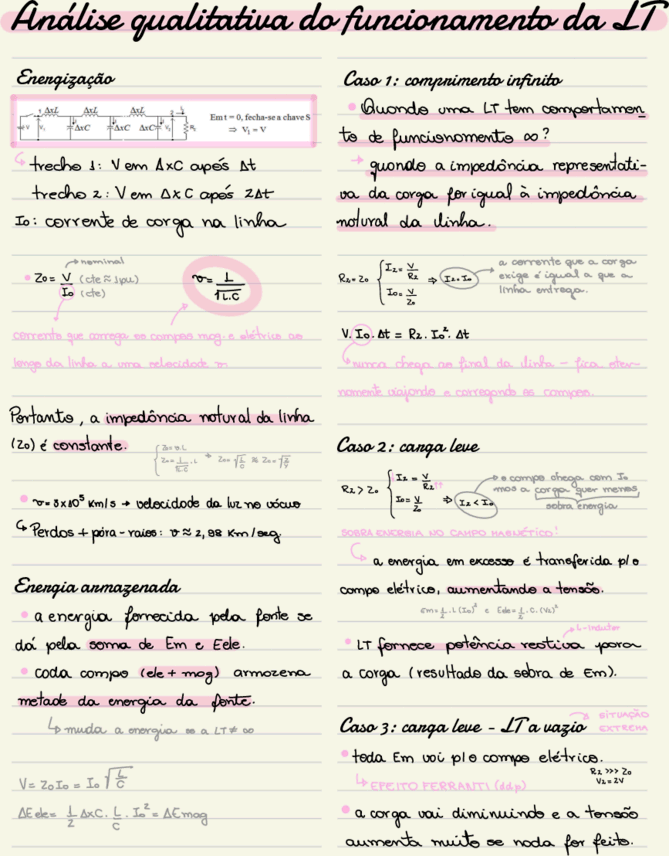 Análise qualitativa do funcionamento da LT
Energização
1 ΔxL ΔxL ΔxL 2
V V₁ ΔxC ΔxC ΔxC V₂ R₂
Em t = 0, fecha-se a chave S
⇒ V₁ = V
trecho 1: V em ΔxC após Δt
trecho 2: V em ΔxC após 2Δt
I₀: corrente de carga na linha
nominal
Z₀ = V/I₀ (cte ≈ 1pu) (cte)
v = 1/√L.C
corrente que carrega os campos mag. e elétrico ao
longo da linha a uma velocidade v
Portanto, a impedância natural da linha
(Z₀) é constante.
Z₀ = v.L
Z₀ = 1/√L.C . L → Z₀ = √L/C
v = 3x10⁵ km/s → velocidade da luz no vácuo
Perdas + pára-raios: v ≈ 2,98 km/seg
Energia armazenada
a energia fornecida pela fonte se
dá pela soma de Em e Eele.
cada campo (ele + mag) armazena
metade da energia da fonte.
muda a energia se a LT ≠ ∞
V = Z₀I₀ = I₀ √L/C
ΔEele = 1/2 ΔxC . L/C . I₀² = ΔEmag
Caso 1: comprimento infinito
Quando uma LT tem comportamen
to de funcionamento ∞?
quando a impedância representati-
va da carga for igual à impedância
natural da linha.
R₂ = Z₀ { I₂ = V/R₂ I₀ = V/Z₀ ⇒ I₂ = I₀
a corrente que a carga
exige é igual a que a
linha entrega.
V. I₀. Δt = R₂. I₀². Δt
nunca chega ao final da linha - fica eter-
namente viajando e carregando os campos.
Caso 2: carga leve
R₂ > Z₀ { I₂ = V/R₂ ↑↑ I₀ = V/Z₀ ⇒ I₂ < I₀
o campo chega com I₀
mas a carga quer menos
sobra energia
SOBRA ENERGIA NO CAMPO MAGNÉTICO!
a energia em excesso é transferida p/ o
campo elétrico, aumentando a tensão.
Em = 1/2 . L (I₀)² e Eele = 1/2 . C. (V₂)²
L-indutor
LT fornece potência reativa para
a carga (resultado da sobra de Em).
Caso 3: carga leve - LT a vazio
SITUAÇÃO
EXTREMA
toda Em vai p/ o campo elétrico.
R₂ >>> Z₀
V₂ = 2V
EFEITO FERRANTI (ddp)
a carga vai diminuindo e a tensão
aumenta muito se nada for feito.